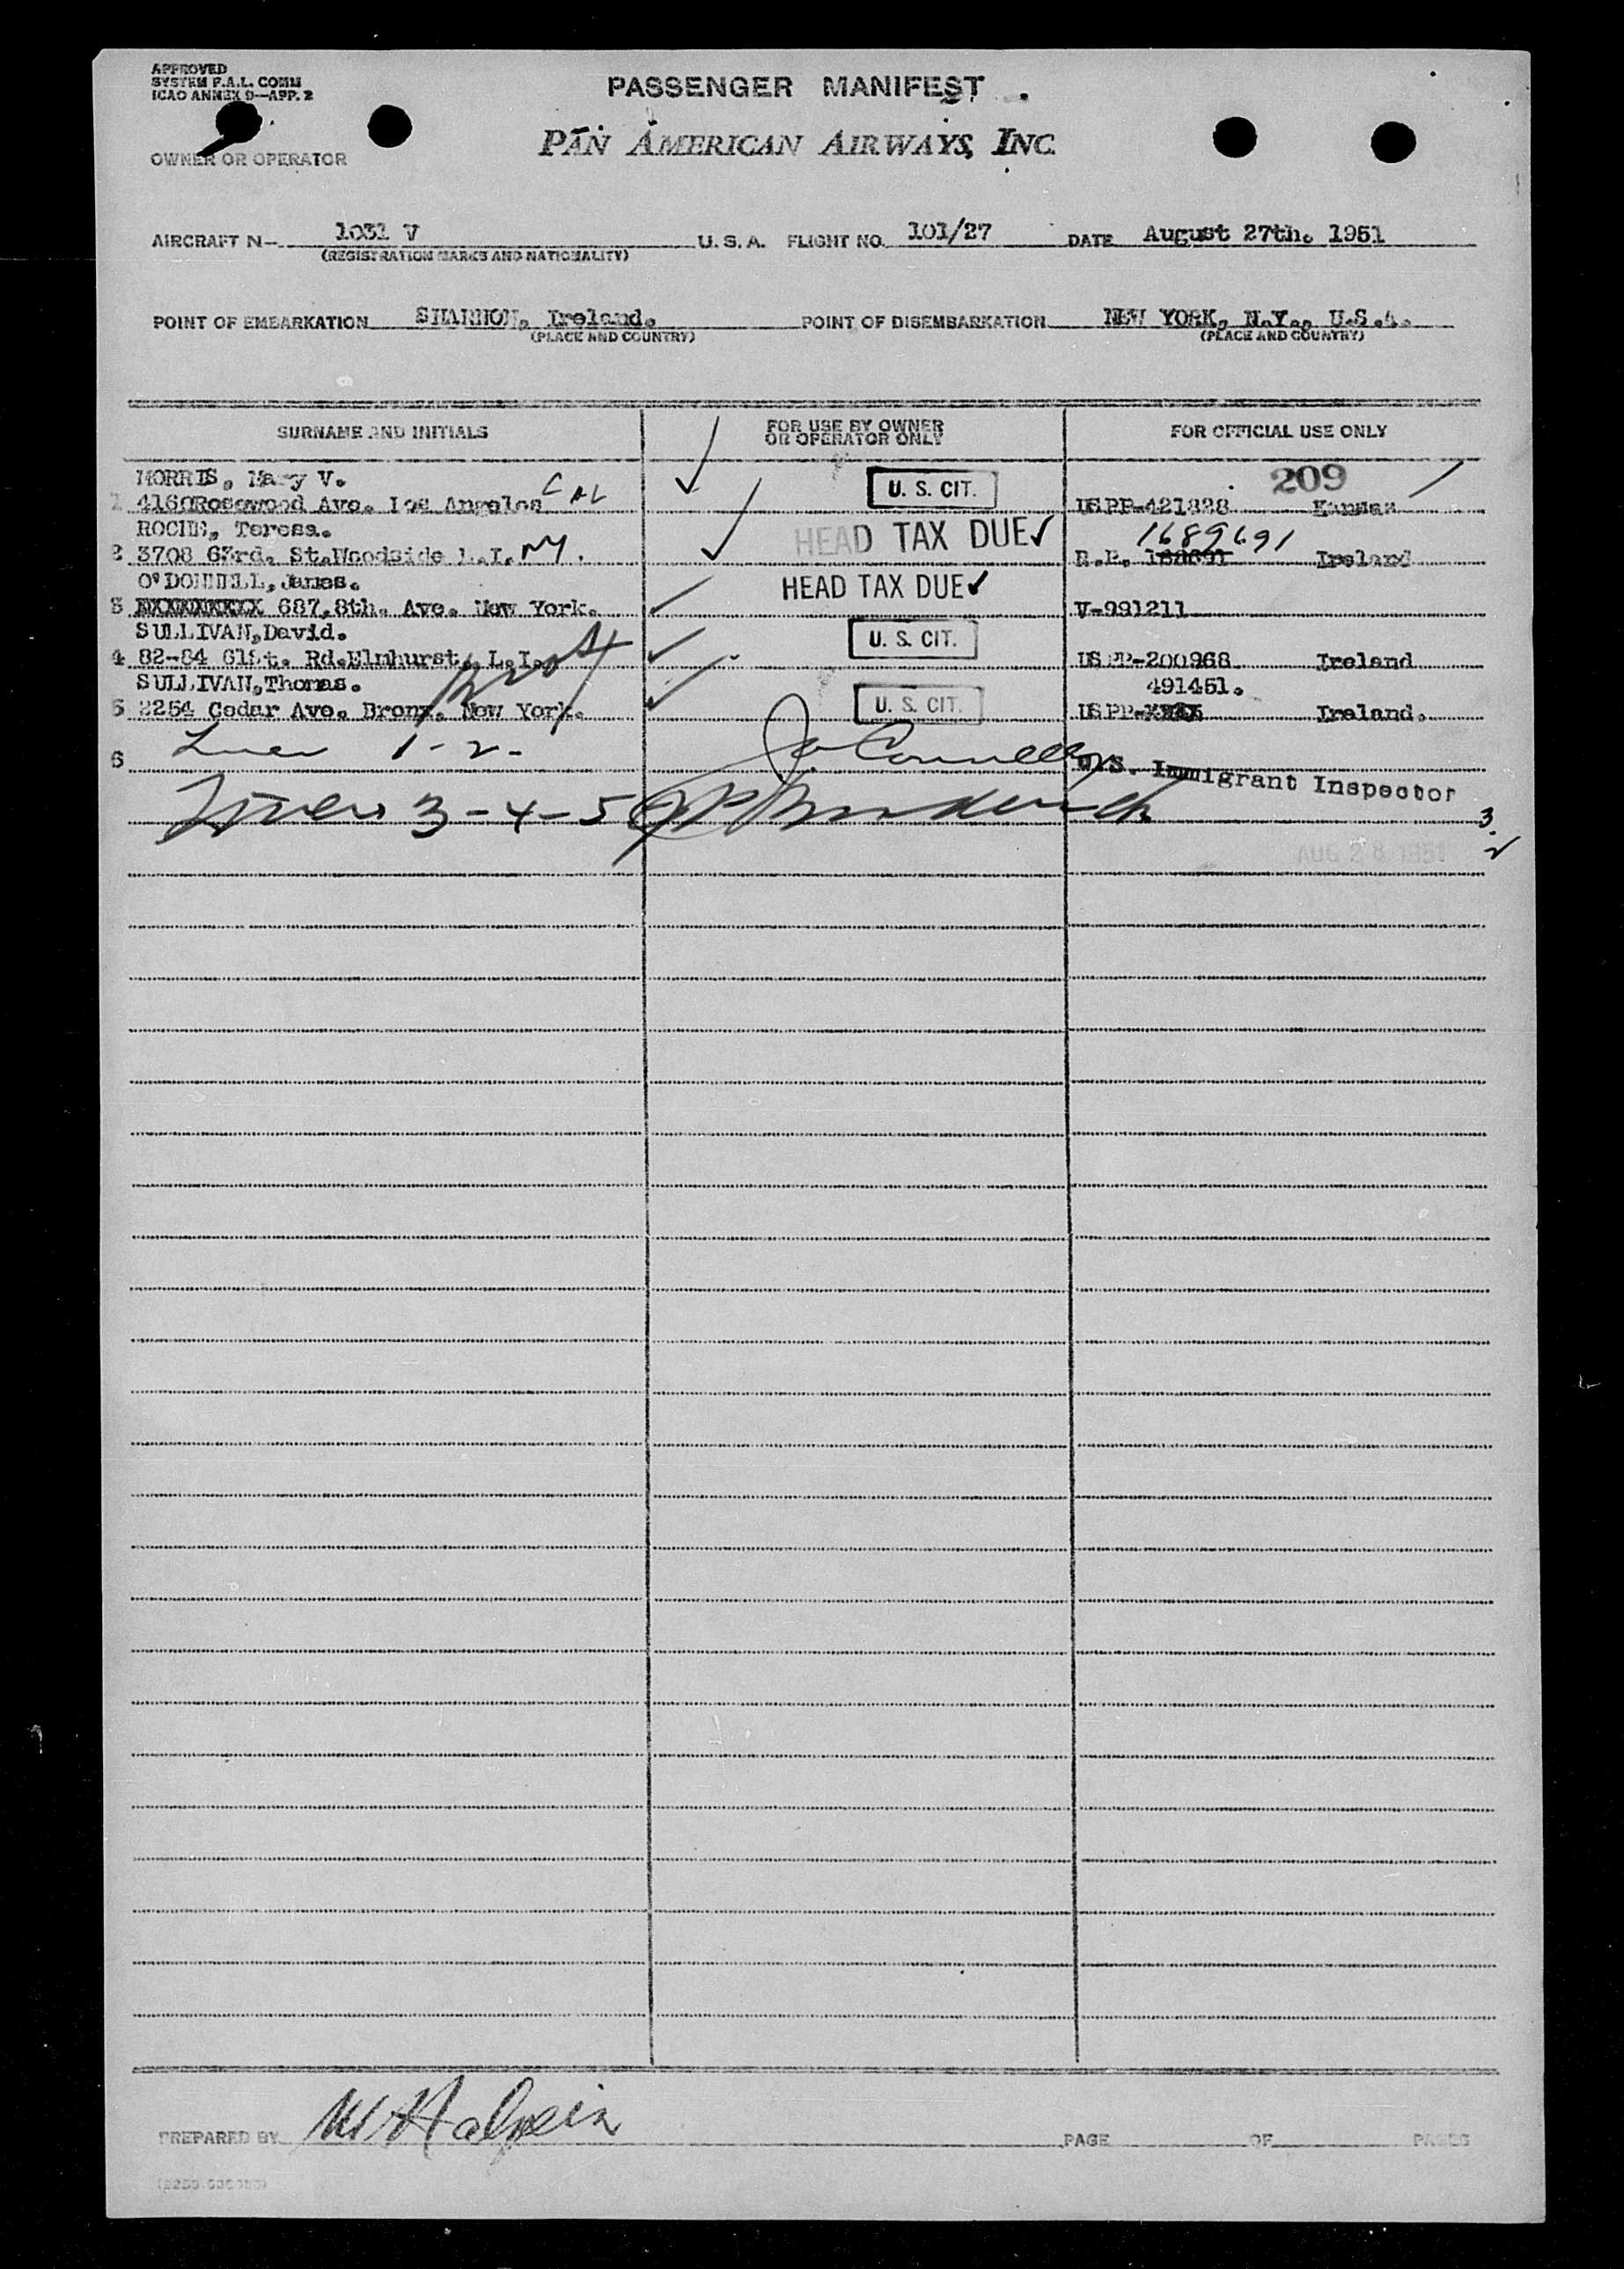 APPROVED
SYSTEM P.A.L. COMM
ICAO ANNEX 9—APP. 2
PASSENGER MANIFEST
PAN AMERICAN AIRWAYS, INC.
OWNER OR OPERATOR
AIRCRAFT N— 1031 V U. S. A. FLIGHT NO. 101/27 DATE August 27th. 1951
(REGISTRATION MARKS AND NATIONALITY)
POINT OF EMBARKATION SHANNON, Ireland. POINT OF DISEMBARKATION NEW YORK, N.Y., U.S.A.
(PLACE AND COUNTRY) (PLACE AND COUNTRY)
SURNAME AND INITIALS FOR USE BY OWNER OR OPERATOR ONLY FOR OFFICIAL USE ONLY
MORRIS, Mary V. 209
1 4160 Rosewood Ave. Los Angeles CAL U. S. CIT. USPP-421828 Kansas
ROCHE, Teresa. HEAD TAX DUE 1689691
2 3708 63rd. St.Woodside L.I. NY. R.P. Ireland
O'DONNELL, James. HEAD TAX DUE
3 687,8th. Ave. New York. V-991211
SULLIVAN,David. U. S. CIT.
4 82-84 61St. Rd.Elmhurst, L.I. USPP-200968 Ireland
SULLIVAN,Thomas. 491451.
5 2254 Cedar Ave. Bronx. New York. U. S. CIT. USPP- Ireland.
6 Lines 1-2- U.S. Immigrant Inspector
Lines 3-4-5
AUG 28 1951
PREPARED BY W Halpein PAGE OF PAGES